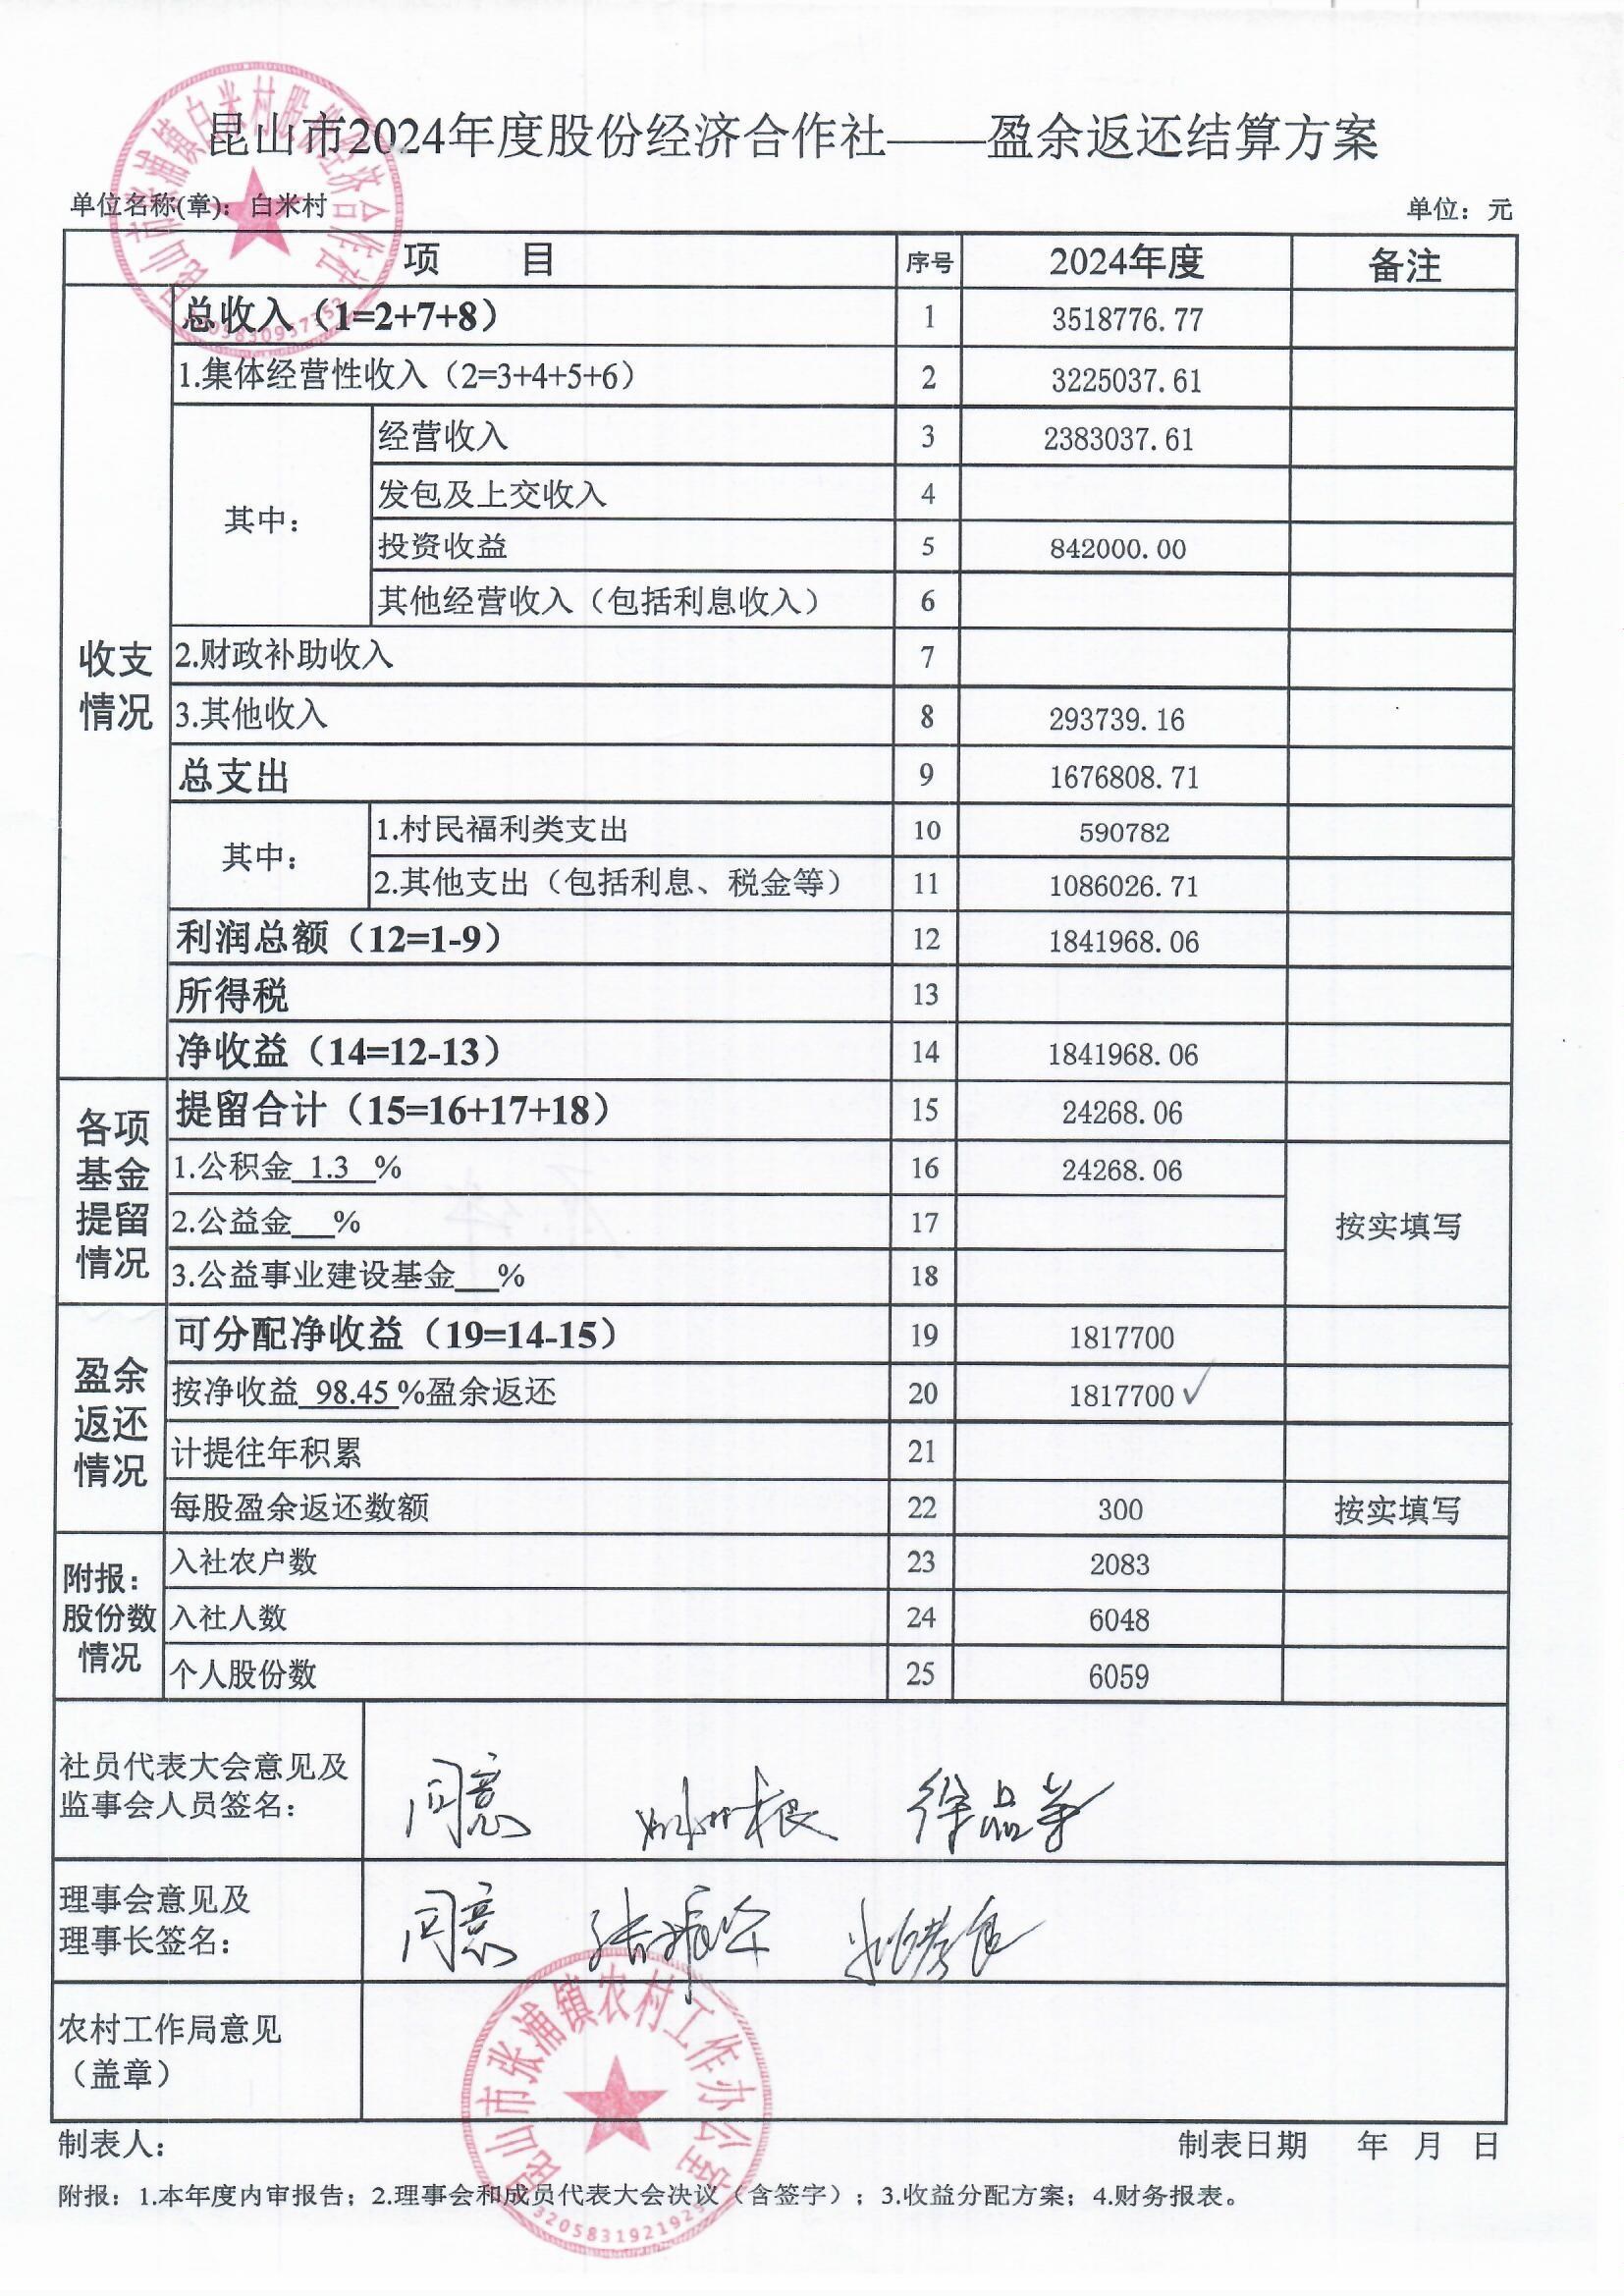 昆山市2024年度股份经济合作社——盈余返还结算方案
单位名称(章)：白米村 单位：元
项 目 序号 2024年度 备注
收支情况
总收入（1=2+7+8） 1 3518776.77
1.集体经营性收入（2=3+4+5+6） 2 3225037.61
其中：
经营收入 3 2383037.61
发包及上交收入 4
投资收益 5 842000.00
其他经营收入（包括利息收入） 6
2.财政补助收入 7
3.其他收入 8 293739.16
总支出 9 1676808.71
其中：
1.村民福利类支出 10 590782
2.其他支出（包括利息、税金等） 11 1086026.71
利润总额（12=1-9） 12 1841968.06
所得税 13
净收益（14=12-13） 14 1841968.06
各项基金提留情况
提留合计（15=16+17+18） 15 24268.06
1.公积金 1.3 % 16 24268.06
按实填写
2.公益金__% 17
3.公益事业建设基金__% 18
盈余返还情况
可分配净收益（19=14-15） 19 1817700
按净收益 98.45 %盈余返还 20 1817700✓
计提往年积累 21
每股盈余返还数额 22 300 按实填写
附报：股份数情况
入社农户数 23 2083
入社人数 24 6048
个人股份数 25 6059
社员代表大会意见及
监事会人员签名：
同意
理事会意见及
理事长签名：
同意
农村工作局意见
（盖章）
制表人： 制表日期 年 月 日
附报：1.本年度内审报告；2.理事会和成员代表大会决议（含签字）；3.收益分配方案；4.财务报表。
昆山市张浦镇白米村股份经济合作社
昆山市张浦镇农村工作办公室
3205831921925